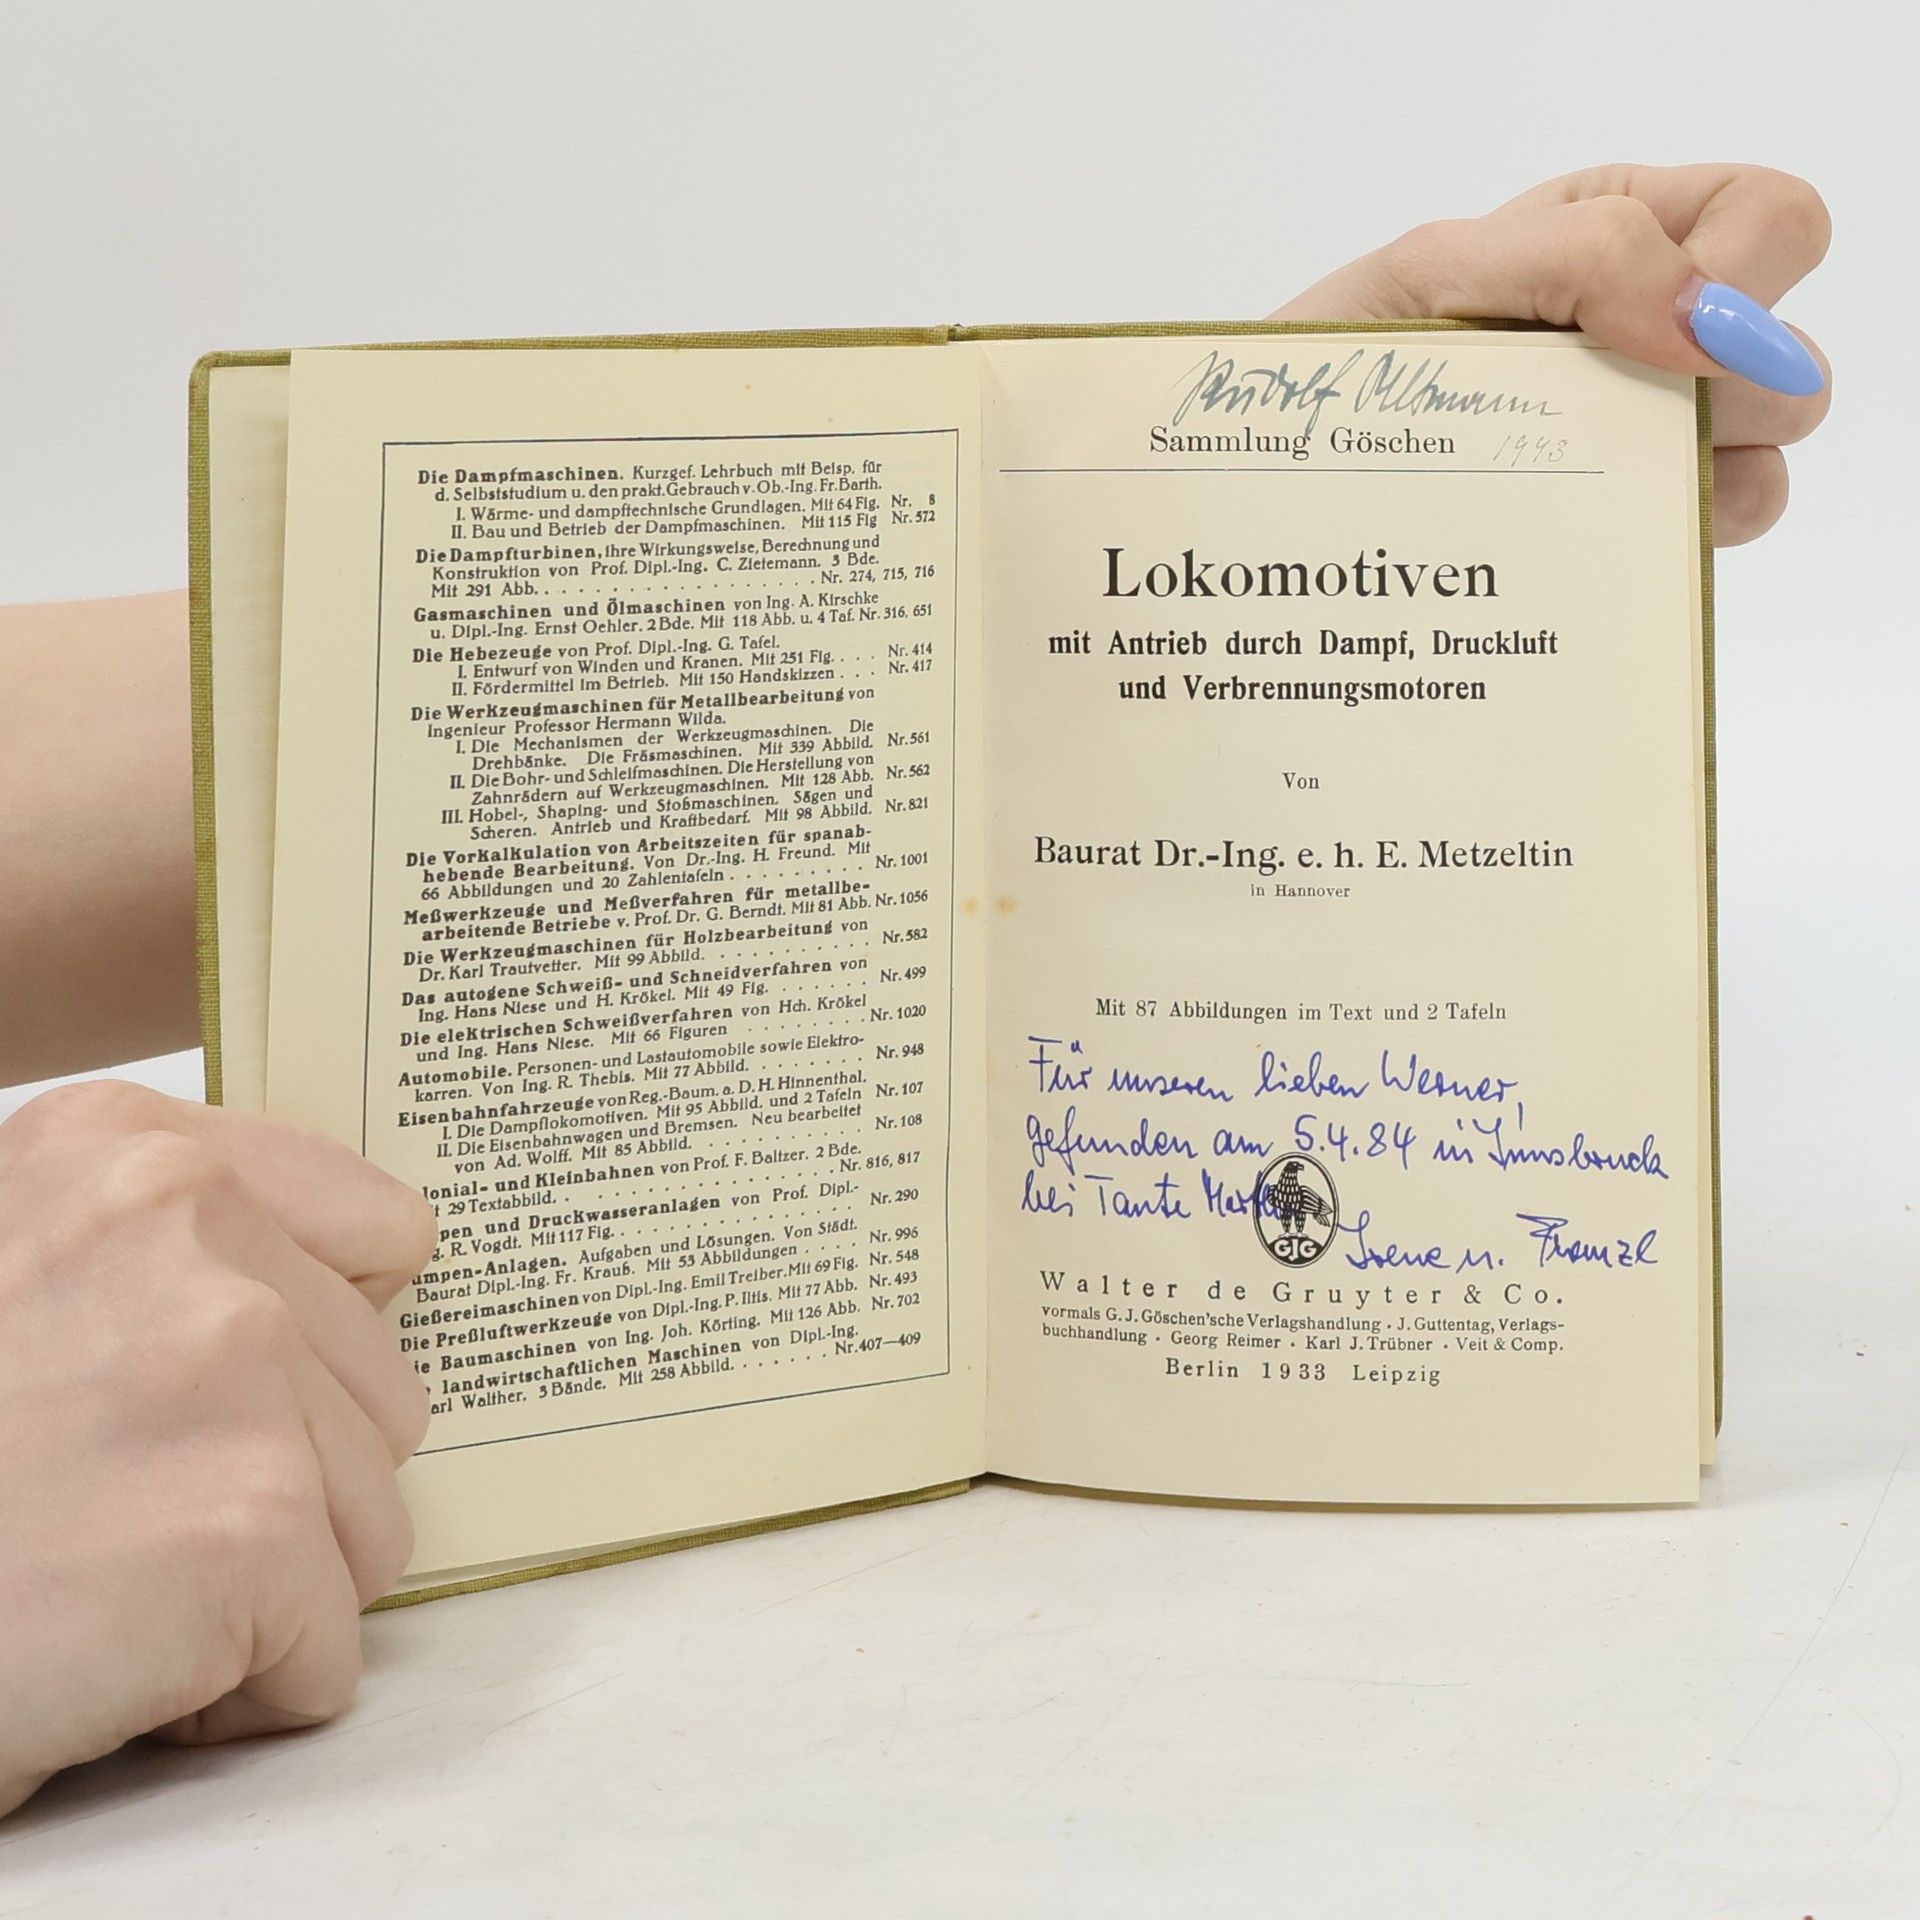 Die Dampfmaschinen. Kurzgef. Lehrbuch mit Beisp. für
d. Selbststudium u. den prakt. Gebrauch v. Ob.-Ing. Fr. Barth.
I. Wärme- und dampftechnische Grundlagen. Mit 64 Fig. Nr. 8
II. Bau und Betrieb der Dampfmaschinen. Mit 115 Fig Nr. 572
Die Dampfturbinen, ihre Wirkungsweise, Berechnung und
Konstruktion von Prof. Dipl.-Ing. C. Zietemann. 3 Bde.
Mit 291 Abb. . . . . . . . . . . . . Nr. 274, 715, 716
Gasmaschinen und Ölmaschinen von Ing. A. Kirschke
u. Dipl.-Ing. Ernst Oehler. 2 Bde. Mit 118 Abb. u. 4 Taf. Nr. 316, 651
Die Hebezeuge von Prof. Dipl.-Ing. G. Tafel.
I. Entwurf von Winden und Kranen. Mit 251 Fig. . . . Nr. 414
II. Fördermittel im Betrieb. Mit 150 Handskizzen . . . Nr. 417
Die Werkzeugmaschinen für Metallbearbeitung von
Ingenieur Professor Hermann Wilda.
I. Die Mechanismen der Werkzeugmaschinen. Die
Drehbänke. Die Fräsmaschinen. Mit 339 Abbild. Nr. 561
II. Die Bohr- und Schleifmaschinen. Die Herstellung von
Zahnrädern auf Werkzeugmaschinen. Mit 128 Abb. Nr. 562
III. Hobel-, Shaping- und Stoßmaschinen. Sägen und
Scheren. Antrieb und Kraftbedarf. Mit 98 Abbild. Nr. 821
Die Vorkalkulation von Arbeitszeiten für spanab-
hebende Bearbeitung. Von Dr.-Ing. H. Freund. Mit
66 Abbildungen und 20 Zahlentafeln . . . . . . . . . Nr. 1001
Meßwerkzeuge und Meßverfahren für metallbe-
arbeitende Betriebe v. Prof. Dr. G. Berndt. Mit 81 Abb. Nr. 1056
Die Werkzeugmaschinen für Holzbearbeitung von
Dr. Karl Trautvetter. Mit 99 Abbild. . . . . . . . . . Nr. 582
Das autogene Schweiß- und Schneidverfahren von
Ing. Hans Niese und H. Krökel. Mit 49 Fig. . . . . . . Nr. 499
Die elektrischen Schweißverfahren von Hch. Krökel
und Ing. Hans Niese. Mit 66 Figuren . . . . . . . . Nr. 1020
Automobile. Personen- und Lastautomobile sowie Elektro-
karren. Von Ing. R. Thebis. Mit 77 Abbild. . . . . . . Nr. 948
Eisenbahnfahrzeuge von Reg.-Baum. a. D. H. Hinnenthal.
I. Die Dampflokomotiven. Mit 95 Abbild. und 2 Tafeln Nr. 107
II. Die Eisenbahnwagen und Bremsen. Neu bearbeitet
von Ad. Wolff. Mit 85 Abbild. . . . . . . . . . . Nr. 108
lonial- und Kleinbahnen von Prof. F. Baltzer. 2 Bde.
t 29 Textabbild. . . . . . . . . . . . . . Nr. 816, 817
pen und Druckwasseranlagen von Prof. Dipl.-
g. R. Vogdt. Mit 117 Fig. . . . . . . . . . . . . Nr. 290
umpen-Anlagen. Aufgaben und Lösungen. Von Städt.
Baurat Dipl.-Ing. Fr. Krauß. Mit 53 Abbildungen . . . . Nr. 996
Gießereimaschinen von Dipl.-Ing. Emil Treiber. Mit 69 Fig. Nr. 548
Die Preßluftwerkzeuge von Dipl.-Ing. P. Iltis. Mit 77 Abb. Nr. 493
ie Baumaschinen von Ing. Joh. Körting. Mit 126 Abb. Nr. 702
landwirtschaftlichen Maschinen von Dipl.-Ing.
arl Walther. 3 Bände. Mit 258 Abbild. . . . . . . Nr. 407—409
Rudolf Oltmann
Sammlung Göschen 1943
Lokomotiven
mit Antrieb durch Dampf, Druckluft
und Verbrennungsmotoren
Von
Baurat Dr.-Ing. e. h. E. Metzeltin
in Hannover
Mit 87 Abbildungen im Text und 2 Tafeln
Für unseren lieben Werner,
gefunden am 5.4.84 in Innsbruck
bei Tante
GJG
Irene u. Franzl
Walter de Gruyter & Co.
vormals G. J. Göschen'sche Verlagshandlung · J. Guttentag, Verlags-
buchhandlung · Georg Reimer · Karl J. Trübner · Veit & Comp.
Berlin 1933 Leipzig